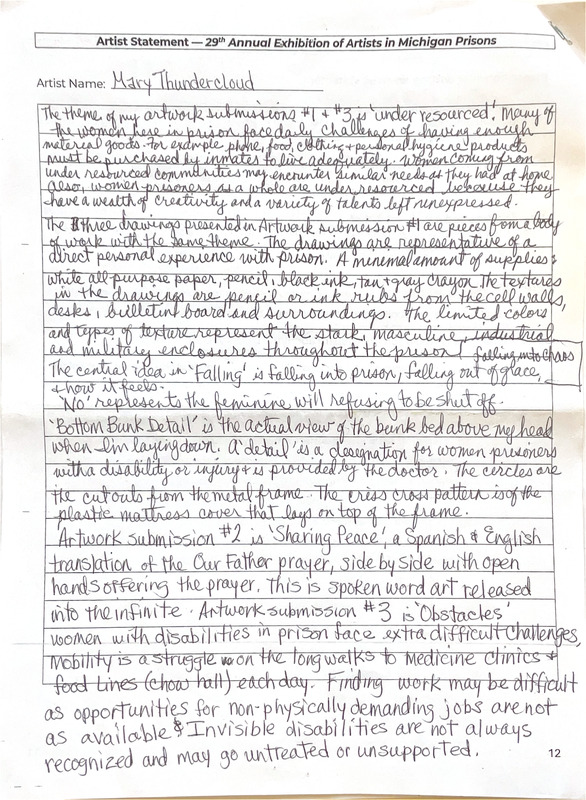 Artist Statement — 29th Annual Exhibition of Artists in Michigan Prisons
Artist Name: Mary Thundercloud
The theme of my artwork submissions #1 + #3 is 'under resourced'. Many of
the women here in prison face daily challenges of having enough
material goods. For example phone, food, clothing + personal hygiene products
must be purchased by inmates to live adequately. Women coming from
under resourced communities may encounter similar needs as they had at home
also, women prisoners as a whole are under resourced because they
have a wealth of creativity and a variety of talents left unexpressed.
The three drawings presented in Artwork submission #1 are pieces from a body
of work with the same theme. The drawings are representative of a
direct personal experience with prison. A minemal amount of supplies;
white all purpose paper, pencil, black ink, tan + gray crayon. The textures
in the drawings are pencil or ink rubs from the cell walls,
desks, bulletin board and surroundings. The limited colors
and types of texture represent the stark, masculine, industrial
and military enclosures throughout the prison.
The central idea in 'Falling' is falling into prison, falling out of grace, falling into chaos
+ how it feels.
'No' represents the feminine will refusing to be shut off.
'Bottom Bunk Detail' is the actual view of the bunk bed above my head
when I'm laying down. A 'detail' is a designation for women prisoners
with a disability or injury + is provided by the doctor. The circles are
the cutouts from the metal frame. The criss cross pattern is of the
plastic mattress cover that lays on top of the frame.
Artwork submission #2 is 'Sharing Peace', a Spanish & English
translation of the Our Father prayer, side by side with open
hands offering the prayer. This is spoken word art released
into the infinite. Artwork submission #3 is 'Obstacles'
women with disabilities in prison face extra difficult challenges,
Mobility is a struggle on the long walks to Medicine clinics +
food lines (chow hall) each day. Finding work may be difficult
as opportunities for non-physically demanding jobs are not
as available & Invisible disabilities are not always
recognized and may go untreated or unsupported.
12